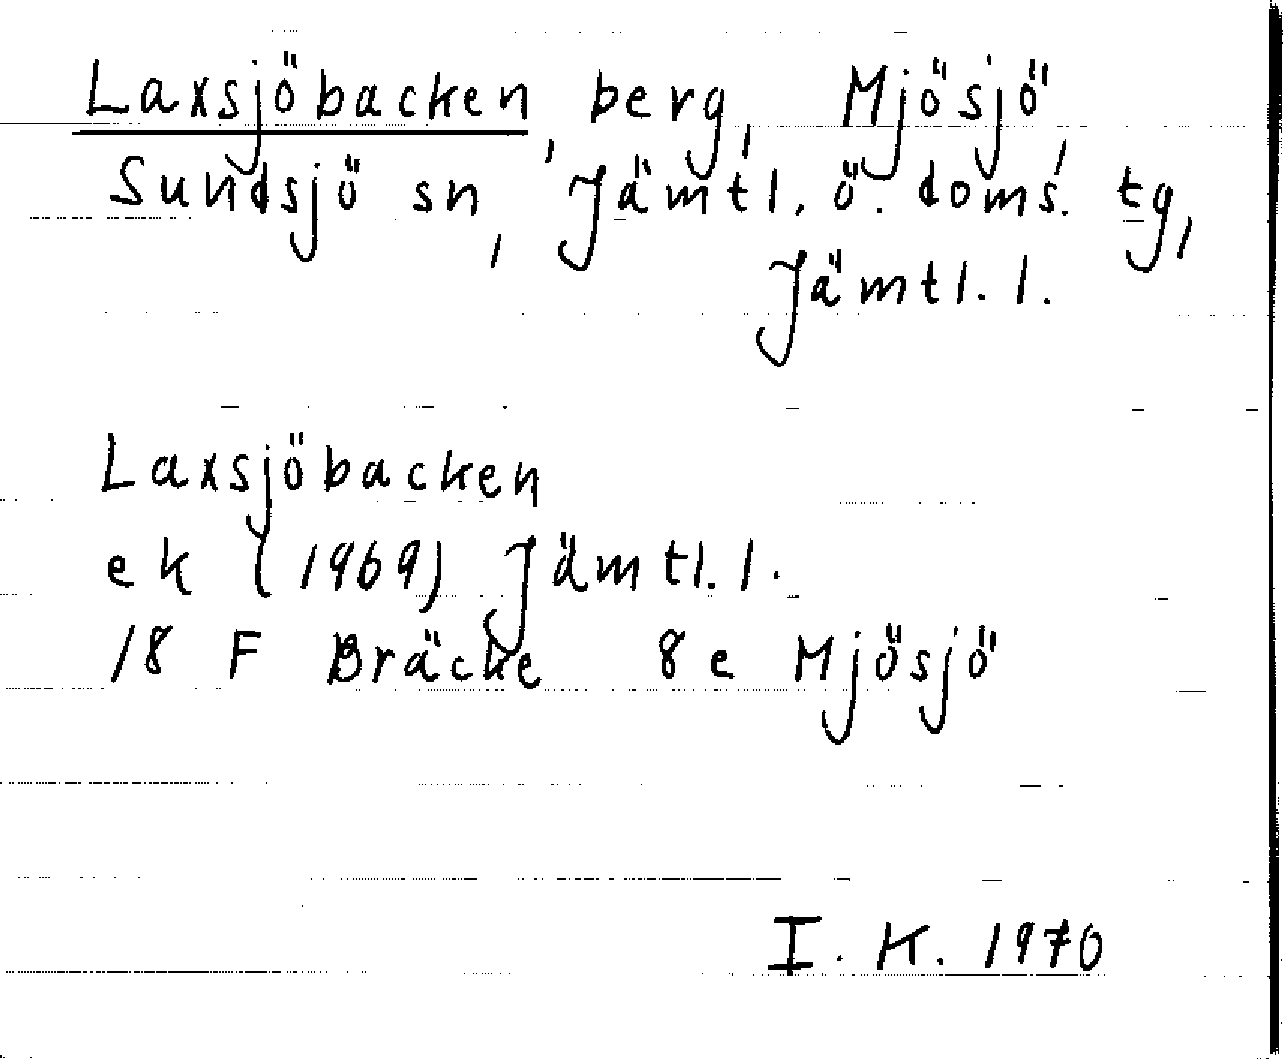 Laxsjöbacken, berg, Mjösjö,
Sundsjö sn, Jämtl. ö. doms. tg,
Jämtl. l.
Laxsjöbacken
ek (1969) Jämtl. l.
18 F Bräcke 8 e Mjösjö
I. K. 1970